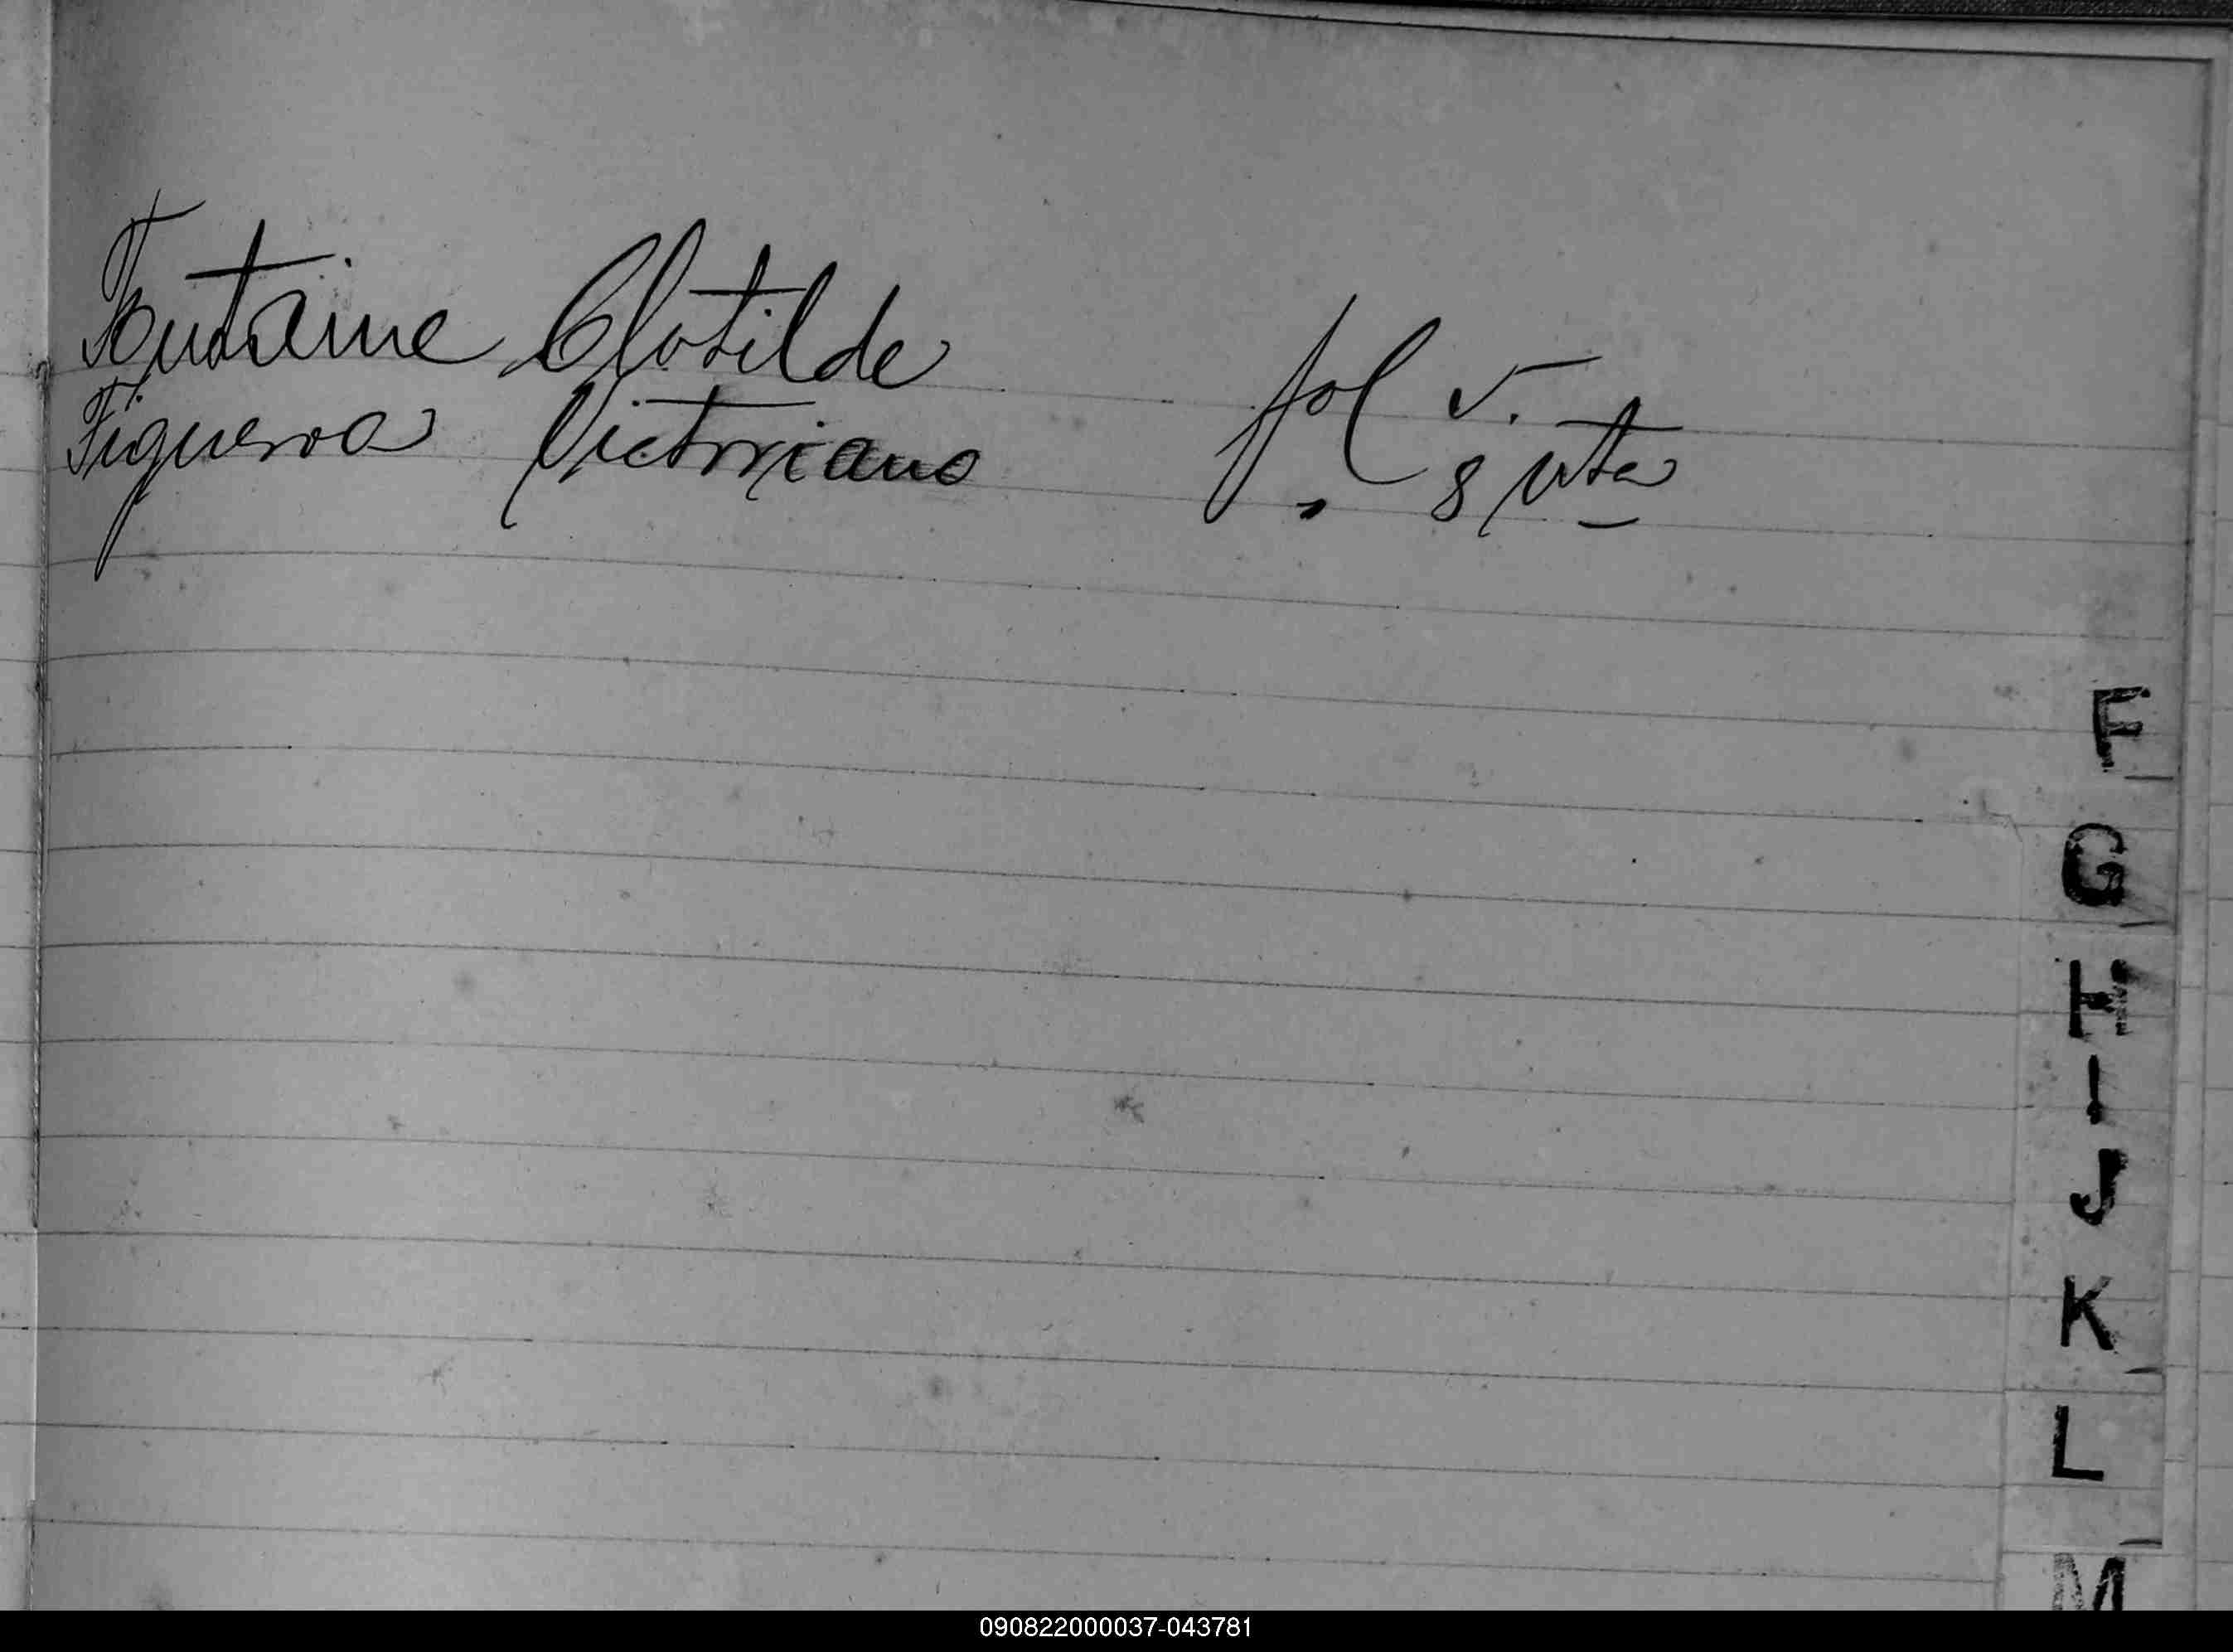 Fontaine Clotilde fol 5.
Figueroa Victoriano " 8 vta
F
G
H
I
J
K
L
M
090822000037-043781